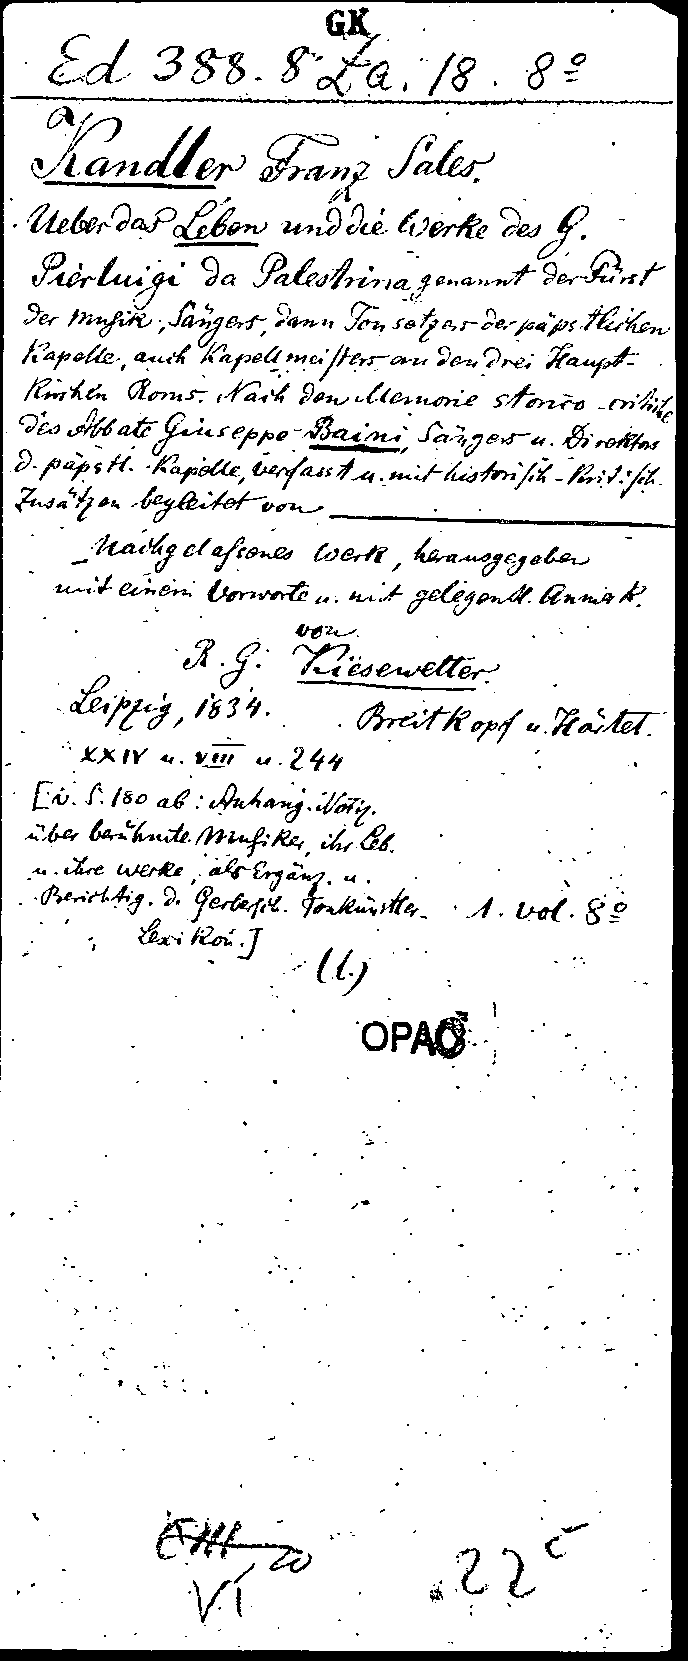 GK
Ed 388. 8° Za. 18. 8º
Kandler Franz Sales.
Ueber das Leben und die Werke des G.
Pierluigi da Palestrina genannt der Fürst
der Musik, Sängers, dann Tonsetzers der päpstlichen
Kapelle, auch Kapellmeisters an den drei Haupt-
Kirchen Roms. Nach den Memorie storico-critiche
des Abbate Giuseppe Baini, Sängers u. Direktors
d. päpstl. Kapelle, verfasst u. mit historisch-kritisch.
Zusätzen begleitet von
Nachgelassenes Werk, herausgegeben
mit einem Vorworte u. mit gelegentl. Anmerk.
von
R. G. Kiesewetter.
Leipzig, 1834. Breitkopf u. Härtel.
XXIV u. VIII u. 244
[v. S. 180 ab: Anhang. Notiz.
über berühmte Musiker, ihr Leb.
u. ihre Werke, als Ergänz. u.
Berichtig. d. Gerbersch. Tonkünstler- 1. vol. 8º
Lexikon.]
(1.)
OPAC
VI 22